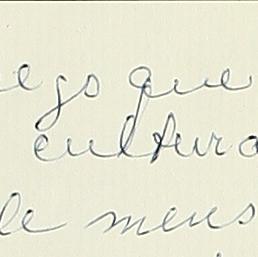 ego que
cultura
le mens